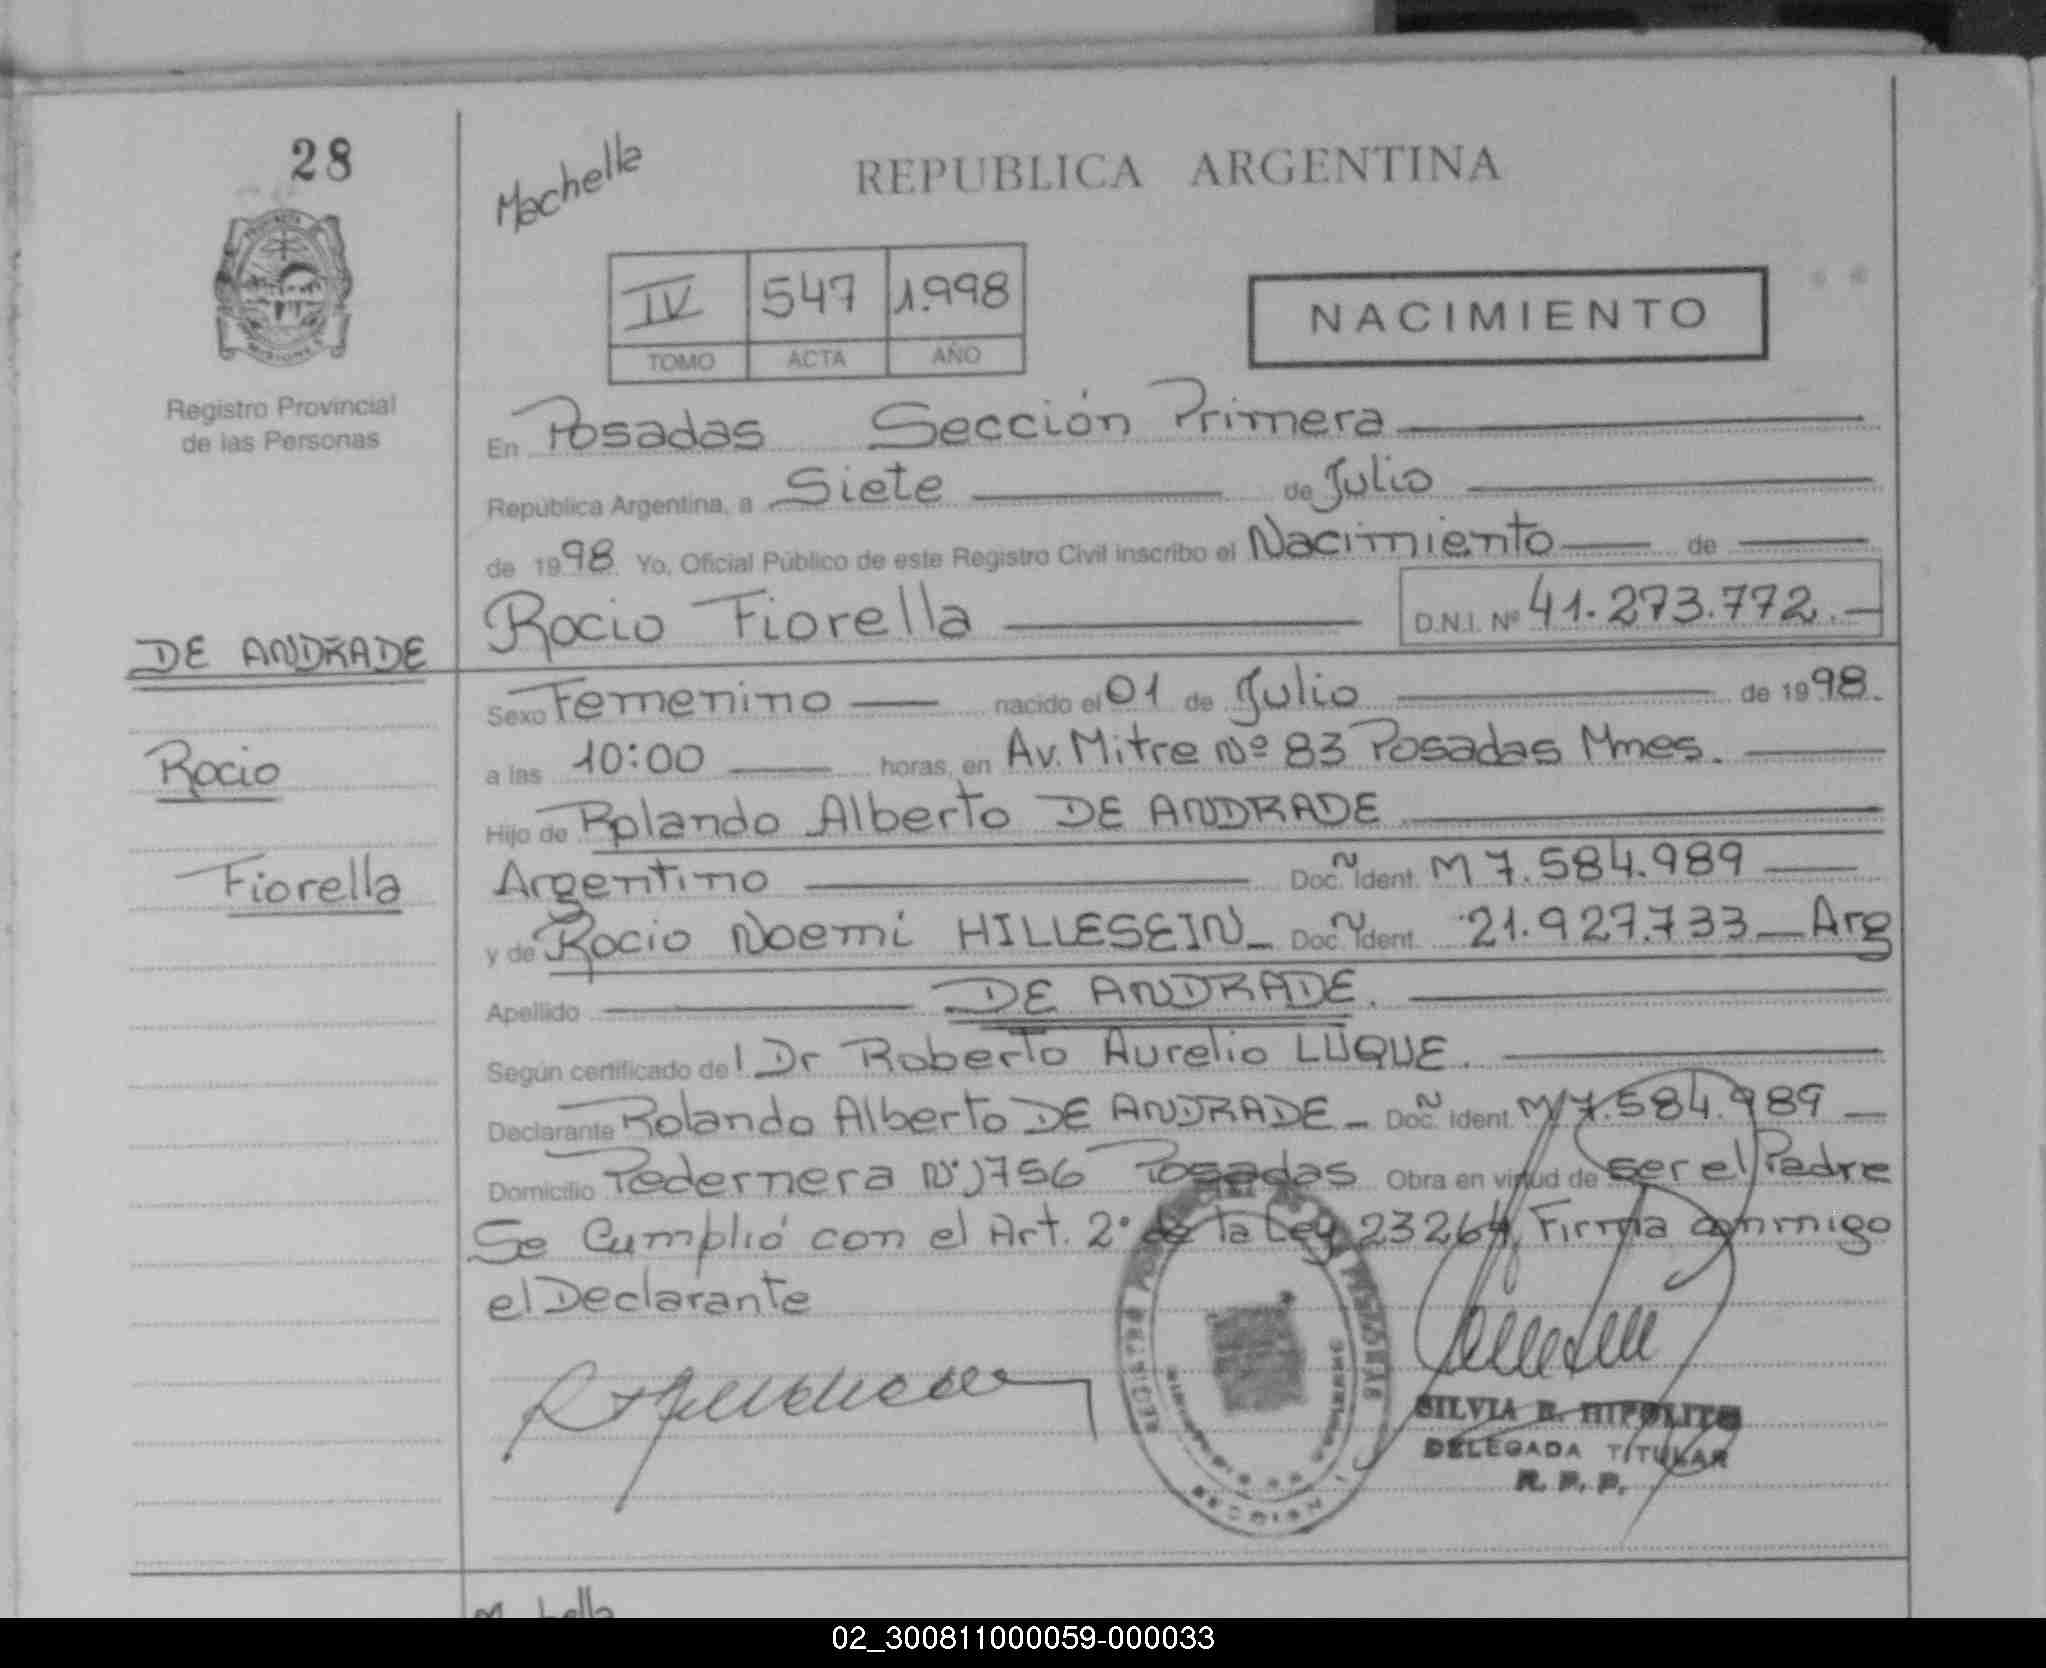 28
Machella
REPUBLICA ARGENTINA
IV 547 1.998
TOMO ACTA AÑO
NACIMIENTO
MISIONES
Registro Provincial
de las Personas
En Posadas Sección Primera
República Argentina, a Siete de Julio
de 1998 Yo, Oficial Público de este Registro Civil inscribo el Nacimiento de
Rocio Fiorella D.N.I. Nº 41.273.772.
DE ANDRADE
Rocio
Fiorella
Sexo Femenino nacido el 01 de Julio de 1998.
a las 10:00 horas, en Av. Mitre Nº 83 Posadas Mnes.
Hijo de Rolando Alberto DE ANDRADE
Argentino Doc. Ident. M 7.584.989
y de Rocio Noemí HILLESEIN Doc. Ident. 21.927.733 Arg
Apellido DE ANDRADE.
Según certificado del Dr Roberto Aurelio LUQUE.
Declarante Rolando Alberto DE ANDRADE Doc. Ident. M 7.584.989
Domicilio Pedernera Nº 1756 Posadas Obra en virtud de ser el Padre
Se Cumplió con el Art. 2º de la Ley 23264, Firma conmigo
el Declarante
SILVIA E. HIPOLITO
DELEGADA TITULAR
R. P. P.
02_300811000059-000033